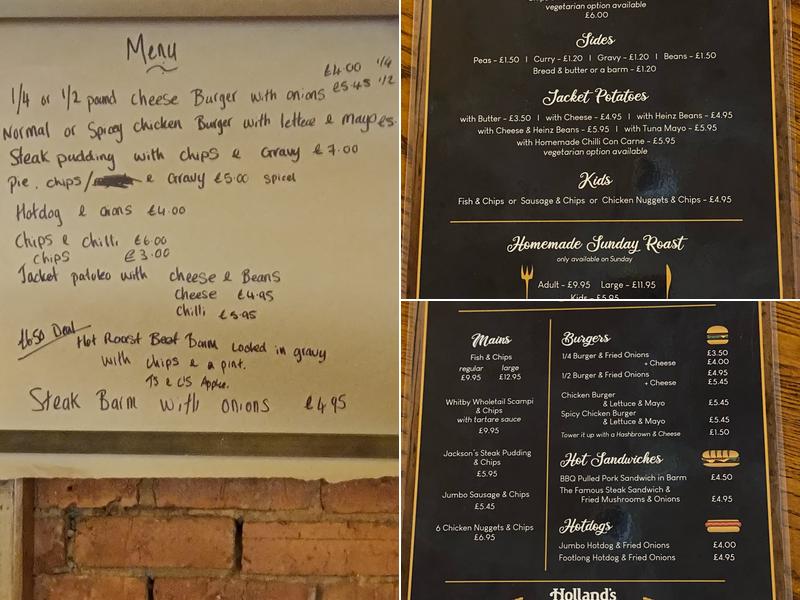 Menu
£4.00 1/4
1/4 or 1/2 pound cheese Burger with onions £5.45 1/2
Normal or Spicy chicken Burger with lettuce & mayo £5.
Steak pudding with chips & Gravy £7.00
Pie, chips/ & Gravy £5.00 spicel
Hotdog & onions £4.00
Chips & chilli £6.00
chips £3.00
Jacket patuleo with cheese & Beans
cheese £4.95
chilli £5.95
Deal Hot Roast Beef Barm Locked in gravy
with chips & a pint.
T's & C's Apply.
Steak Barm with onions £4.95
vegetarian option available
£6.00
Sides
Peas - £1.50 | Curry - £1.20 | Gravy - £1.20 | Beans - £1.50
Bread & butter or a barm - £1.20
Jacket Potatoes
with Butter - £3.50 | with Cheese - £4.95 | with Heinz Beans - £4.95
with Cheese & Heinz Beans - £5.95 | with Tuna Mayo - £5.95
with Homemade Chilli Con Carne - £5.95
vegetarian option available
Kids
Fish & Chips or Sausage & Chips or Chicken Nuggets & Chips - £4.95
Homemade Sunday Roast
only available on Sunday
Adult - £9.95 Large - £11.95
Kids - £5.95
Mains
Fish & Chips
regular large
£9.95 £12.95
Whitby Wholetail Scampi
& Chips
with tartare sauce
£9.95
Jackson's Steak Pudding
& Chips
£5.95
Jumbo Sausage & Chips
£5.45
6 Chicken Nuggets & Chips
£6.95
Burgers
1/4 Burger & Fried Onions £3.50
+ Cheese £4.00
1/2 Burger & Fried Onions £4.95
+ Cheese £5.45
Chicken Burger
& Lettuce & Mayo £5.45
Spicy Chicken Burger
& Lettuce & Mayo £5.45
Tower it up with a Hashbrown & Cheese £1.50
Hot Sandwiches
BBQ Pulled Pork Sandwich in Barm £4.50
The Famous Steak Sandwich &
Fried Mushrooms & Onions £4.95
Hotdogs
Jumbo Hotdog & Fried Onions £4.00
Footlong Hotdog & Fried Onions £4.95
Holland's